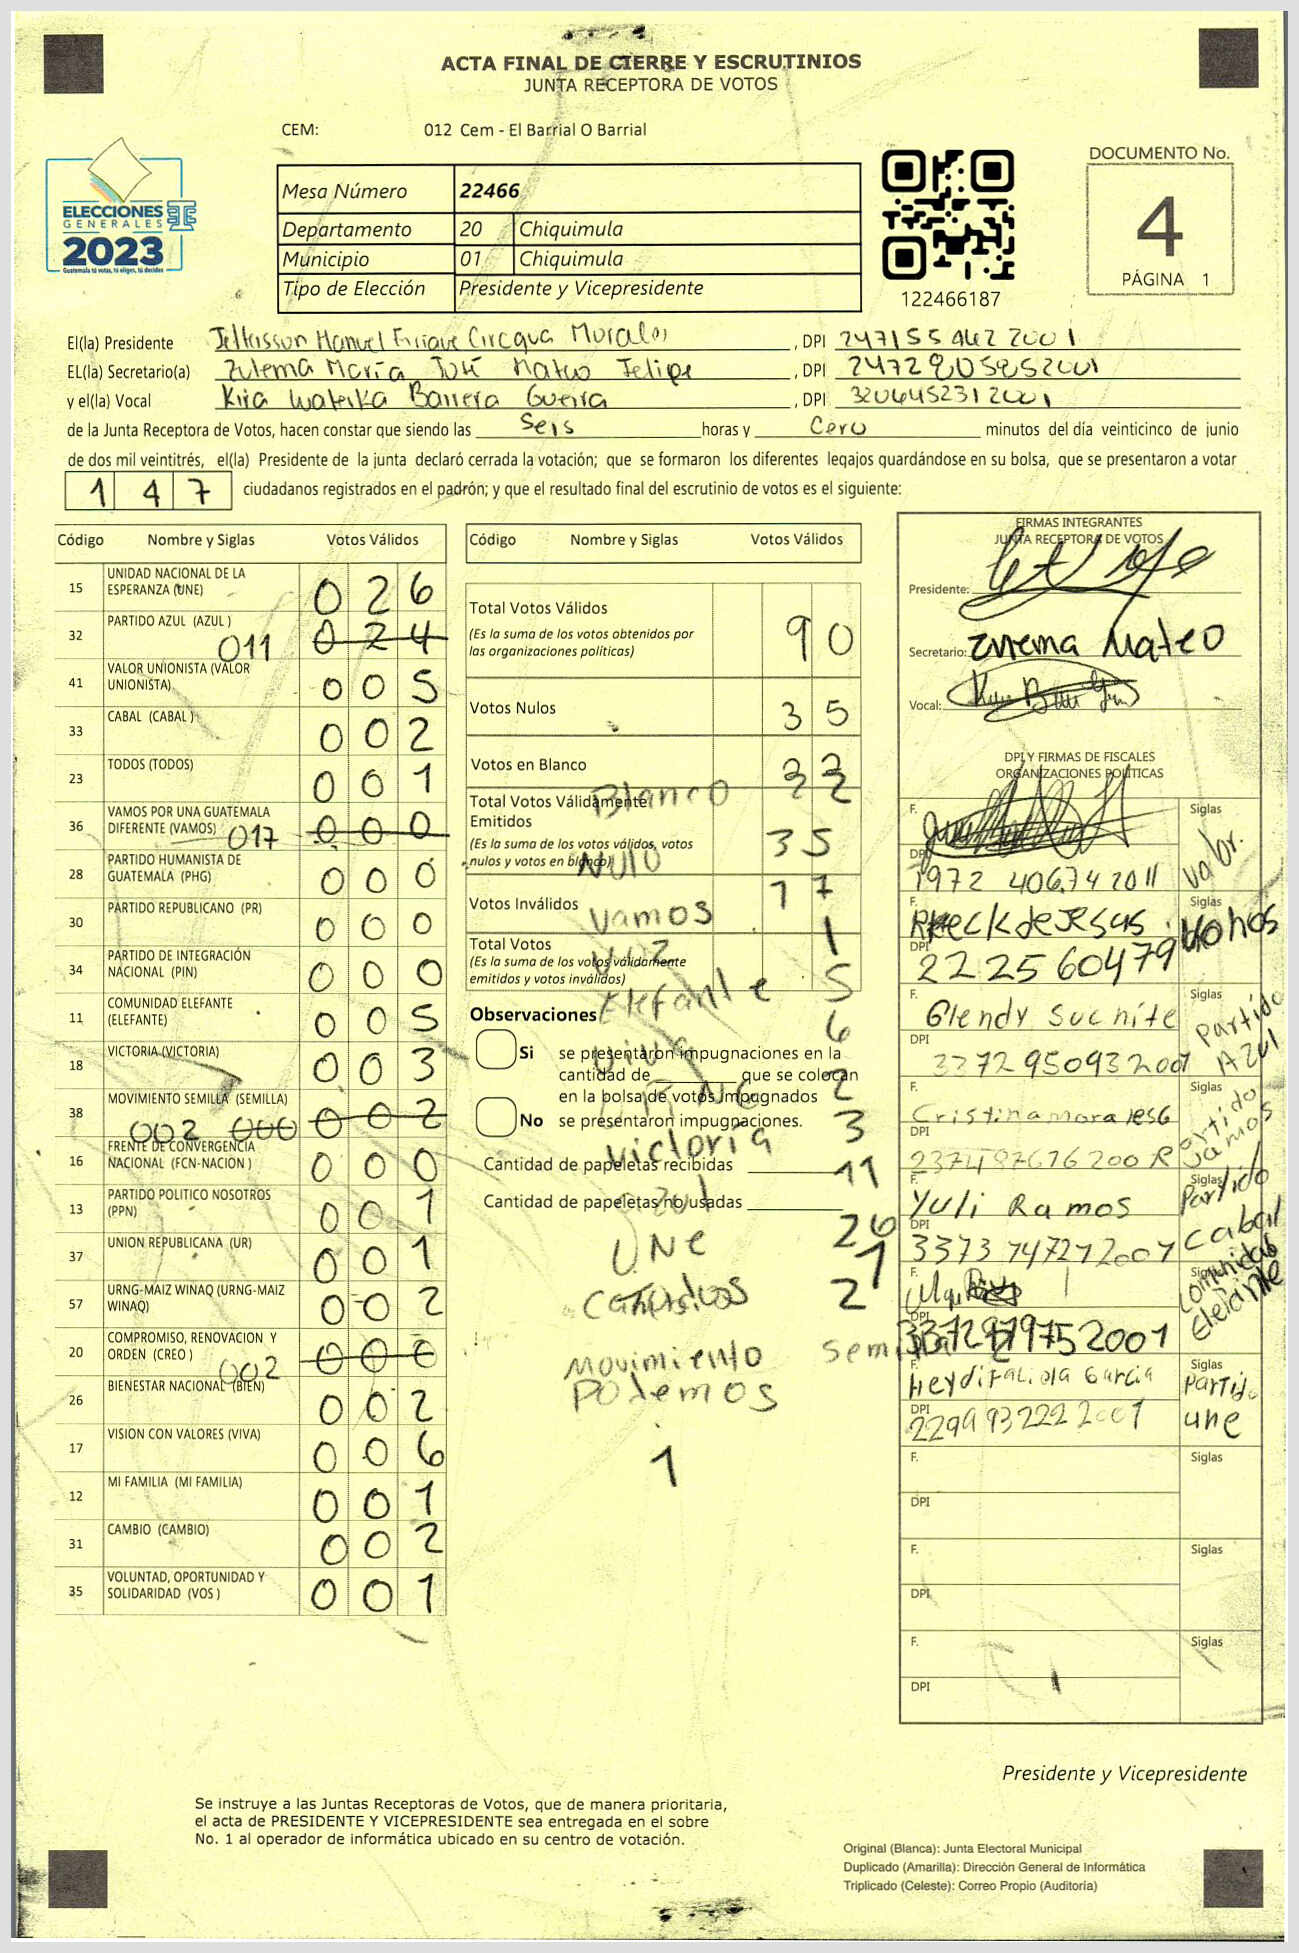 ACTA FINAL DE CIERRE Y ESCRUTINIOS
JUNTA RECEPTORA DE VOTOS
CEM: 012 Cem - El Barrial O Barrial
ELECCIONES
GENERALES
2023
Guatemala tú votas, tú eliges, tú decides
Mesa Número 22466
Departamento 20 Chiquimula
Municipio 01 Chiquimula
Tipo de Elección Presidente y Vicepresidente
122466187
DOCUMENTO No.
4
PÁGINA 1
El(la) Presidente Manuel Enrique Morales , DPI
EL(la) Secretario(a) Zulema María José Mateo Felipe , DPI
y el(la) Vocal Kira Barrera Guerra , DPI 3206452312001
de la Junta Receptora de Votos, hacen constar que siendo las Seis horas y Cero minutos del día veinticinco de junio
de dos mil veintitrés, el(la) Presidente de la junta declaró cerrada la votación; que se formaron los diferentes legajos guardándose en su bolsa, que se presentaron a votar
1 4 7 ciudadanos registrados en el padrón; y que el resultado final del escrutinio de votos es el siguiente:
Código Nombre y Siglas Votos Válidos
15 UNIDAD NACIONAL DE LA ESPERANZA (UNE) 0 2 6
32 PARTIDO AZUL (AZUL ) 011 0 2 4
41 VALOR UNIONISTA (VALOR UNIONISTA) 0 0 5
33 CABAL (CABAL ) 0 0 2
23 TODOS (TODOS) 0 0 1
36 VAMOS POR UNA GUATEMALA DIFERENTE (VAMOS) 017 0 0 0
28 PARTIDO HUMANISTA DE GUATEMALA (PHG) 0 0 0
30 PARTIDO REPUBLICANO (PR) 0 0 0
34 PARTIDO DE INTEGRACIÓN NACIONAL (PIN) 0 0 0
11 COMUNIDAD ELEFANTE (ELEFANTE) 0 0 5
18 VICTORIA (VICTORIA) 0 0 3
38 MOVIMIENTO SEMILLA (SEMILLA) 002 000 0 0 2
16 FRENTE DE CONVERGENCIA NACIONAL (FCN-NACION ) 0 0 0
13 PARTIDO POLITICO NOSOTROS (PPN) 0 0 1
37 UNION REPUBLICANA (UR) 0 0 1
57 URNG-MAIZ WINAQ (URNG-MAIZ WINAQ) 0 0 2
20 COMPROMISO, RENOVACION Y ORDEN (CREO ) 002 0 0 0
26 BIENESTAR NACIONAL (BIEN) 0 0 2
17 VISION CON VALORES (VIVA) 0 0 6
12 MI FAMILIA (MI FAMILIA) 0 0 1
31 CAMBIO (CAMBIO) 0 0 2
35 VOLUNTAD, OPORTUNIDAD Y SOLIDARIDAD (VOS ) 0 0 1
Código Nombre y Siglas Votos Válidos
Total Votos Válidos 9 0
(Es la suma de los votos obtenidos por las organizaciones políticas)
Votos Nulos 3 5
Votos en Blanco
Blanco
Total Votos Válidamente Emitidos
(Es la suma de los votos válidos, votos nulos y votos en blanco) 3 5
Nulo
Votos Inválidos 1 7
Vamos
Total Votos 1
(Es la suma de los votos válidamente emitidos y votos inválidos)
Elefante 5
Observaciones
Viva 6
Si se presentaron impugnaciones en la
cantidad de ________ que se colocan 2
en la bolsa de votos impugnados
No se presentaron impugnaciones.
Victoria 3
Cantidad de papeletas recibidas
11
Cantidad de papeletas no usadas
Azul
UNE 26
1
2
Movimiento Semilla 2
Podemos
1
FIRMAS INTEGRANTES
JUNTA RECEPTORA DE VOTOS
Presidente:
Secretario: Zulema Mateo
Vocal:
DPI Y FIRMAS DE FISCALES
ORGANIZACIONES POLÍTICAS
F. Siglas Valor.
DPI 1972 40674 2011
F. de Jesus Siglas
DPI 22 25 60479
F. Glendy Suchite Siglas Partido Azul
DPI 3372 95093 2001
F. Cristina morales G Siglas Partido Vamos
DPI
F. Yuli Ramos Siglas Partido Cabal
DPI 3373 74727 2001
F. Siglas Comunidad Elefante
DPI
F. Garcia Siglas Partido une
DPI 2299 93222 2001
F. Siglas
DPI
F. Siglas
DPI
F. Siglas
DPI
Presidente y Vicepresidente
Se instruye a las Juntas Receptoras de Votos, que de manera prioritaria,
el acta de PRESIDENTE Y VICEPRESIDENTE sea entregada en el sobre
No. 1 al operador de informática ubicado en su centro de votación.
Original (Blanca): Junta Electoral Municipal
Duplicado (Amarilla): Dirección General de Informática
Triplicado (Celeste): Correo Propio (Auditoría)